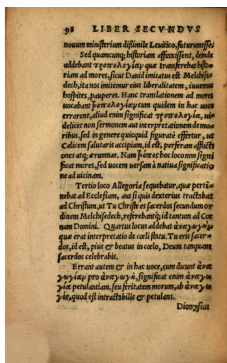 98 LIBER SECVNDVS
nouum ministerium dissimile Leuitico, futurum esset.
Sed quancunq; historiam assumsissent, deinde
addebant τροπολογίαν quæ transferebat histo-
riam ad mores, sicut Dauid imitatus est Melchise-
dech, ita nos imitemur eius liberalitatem, iuuemus
hospites, pauperes. Hanc translationem ad mores
uocabant τροπολογίαν cum quidem in hac uoce
errarent, aliud enim significat τροπολογία, ui-
delicet non sermonem aut interpretationem de mo-
ribus, sed in genere quicquid figurate effertur, ut
Calicem salutaris accipiam, id est, perferam afflicti
ones atq; ærumnas. Nam τρόπος hoc loco non signi
ficat mores, sed uocem uersam à natiua significatio
ne ad uicinam.
Tertio loco Allegoria sequebatur, quæ perti-
nebat ad Ecclesiam, aut si quis dexterius tractabat
ad Christum, ut Tu Christe es sacerdos secundum or
dinem Melchisedech, referebantq; id tantum ad Cœ
nam Domini. Quartus locus addebat ἀναγωγὴν
quæ erat interpretatio de cœli statu. Tu eris sacer-
dos, id est, pius & beatus in cœlo, Deum tanquam
sacerdos celebrabis.
Errant autem & in hac uoce, cum dicunt ἀνα
γωγίαν pro ἀναγωγὴν, significat enim ἀναγω
γία petulantiam, seu feritatem morum, ab ἀνάγω
γος, quod est intractabilis & petulans.
Dionysius